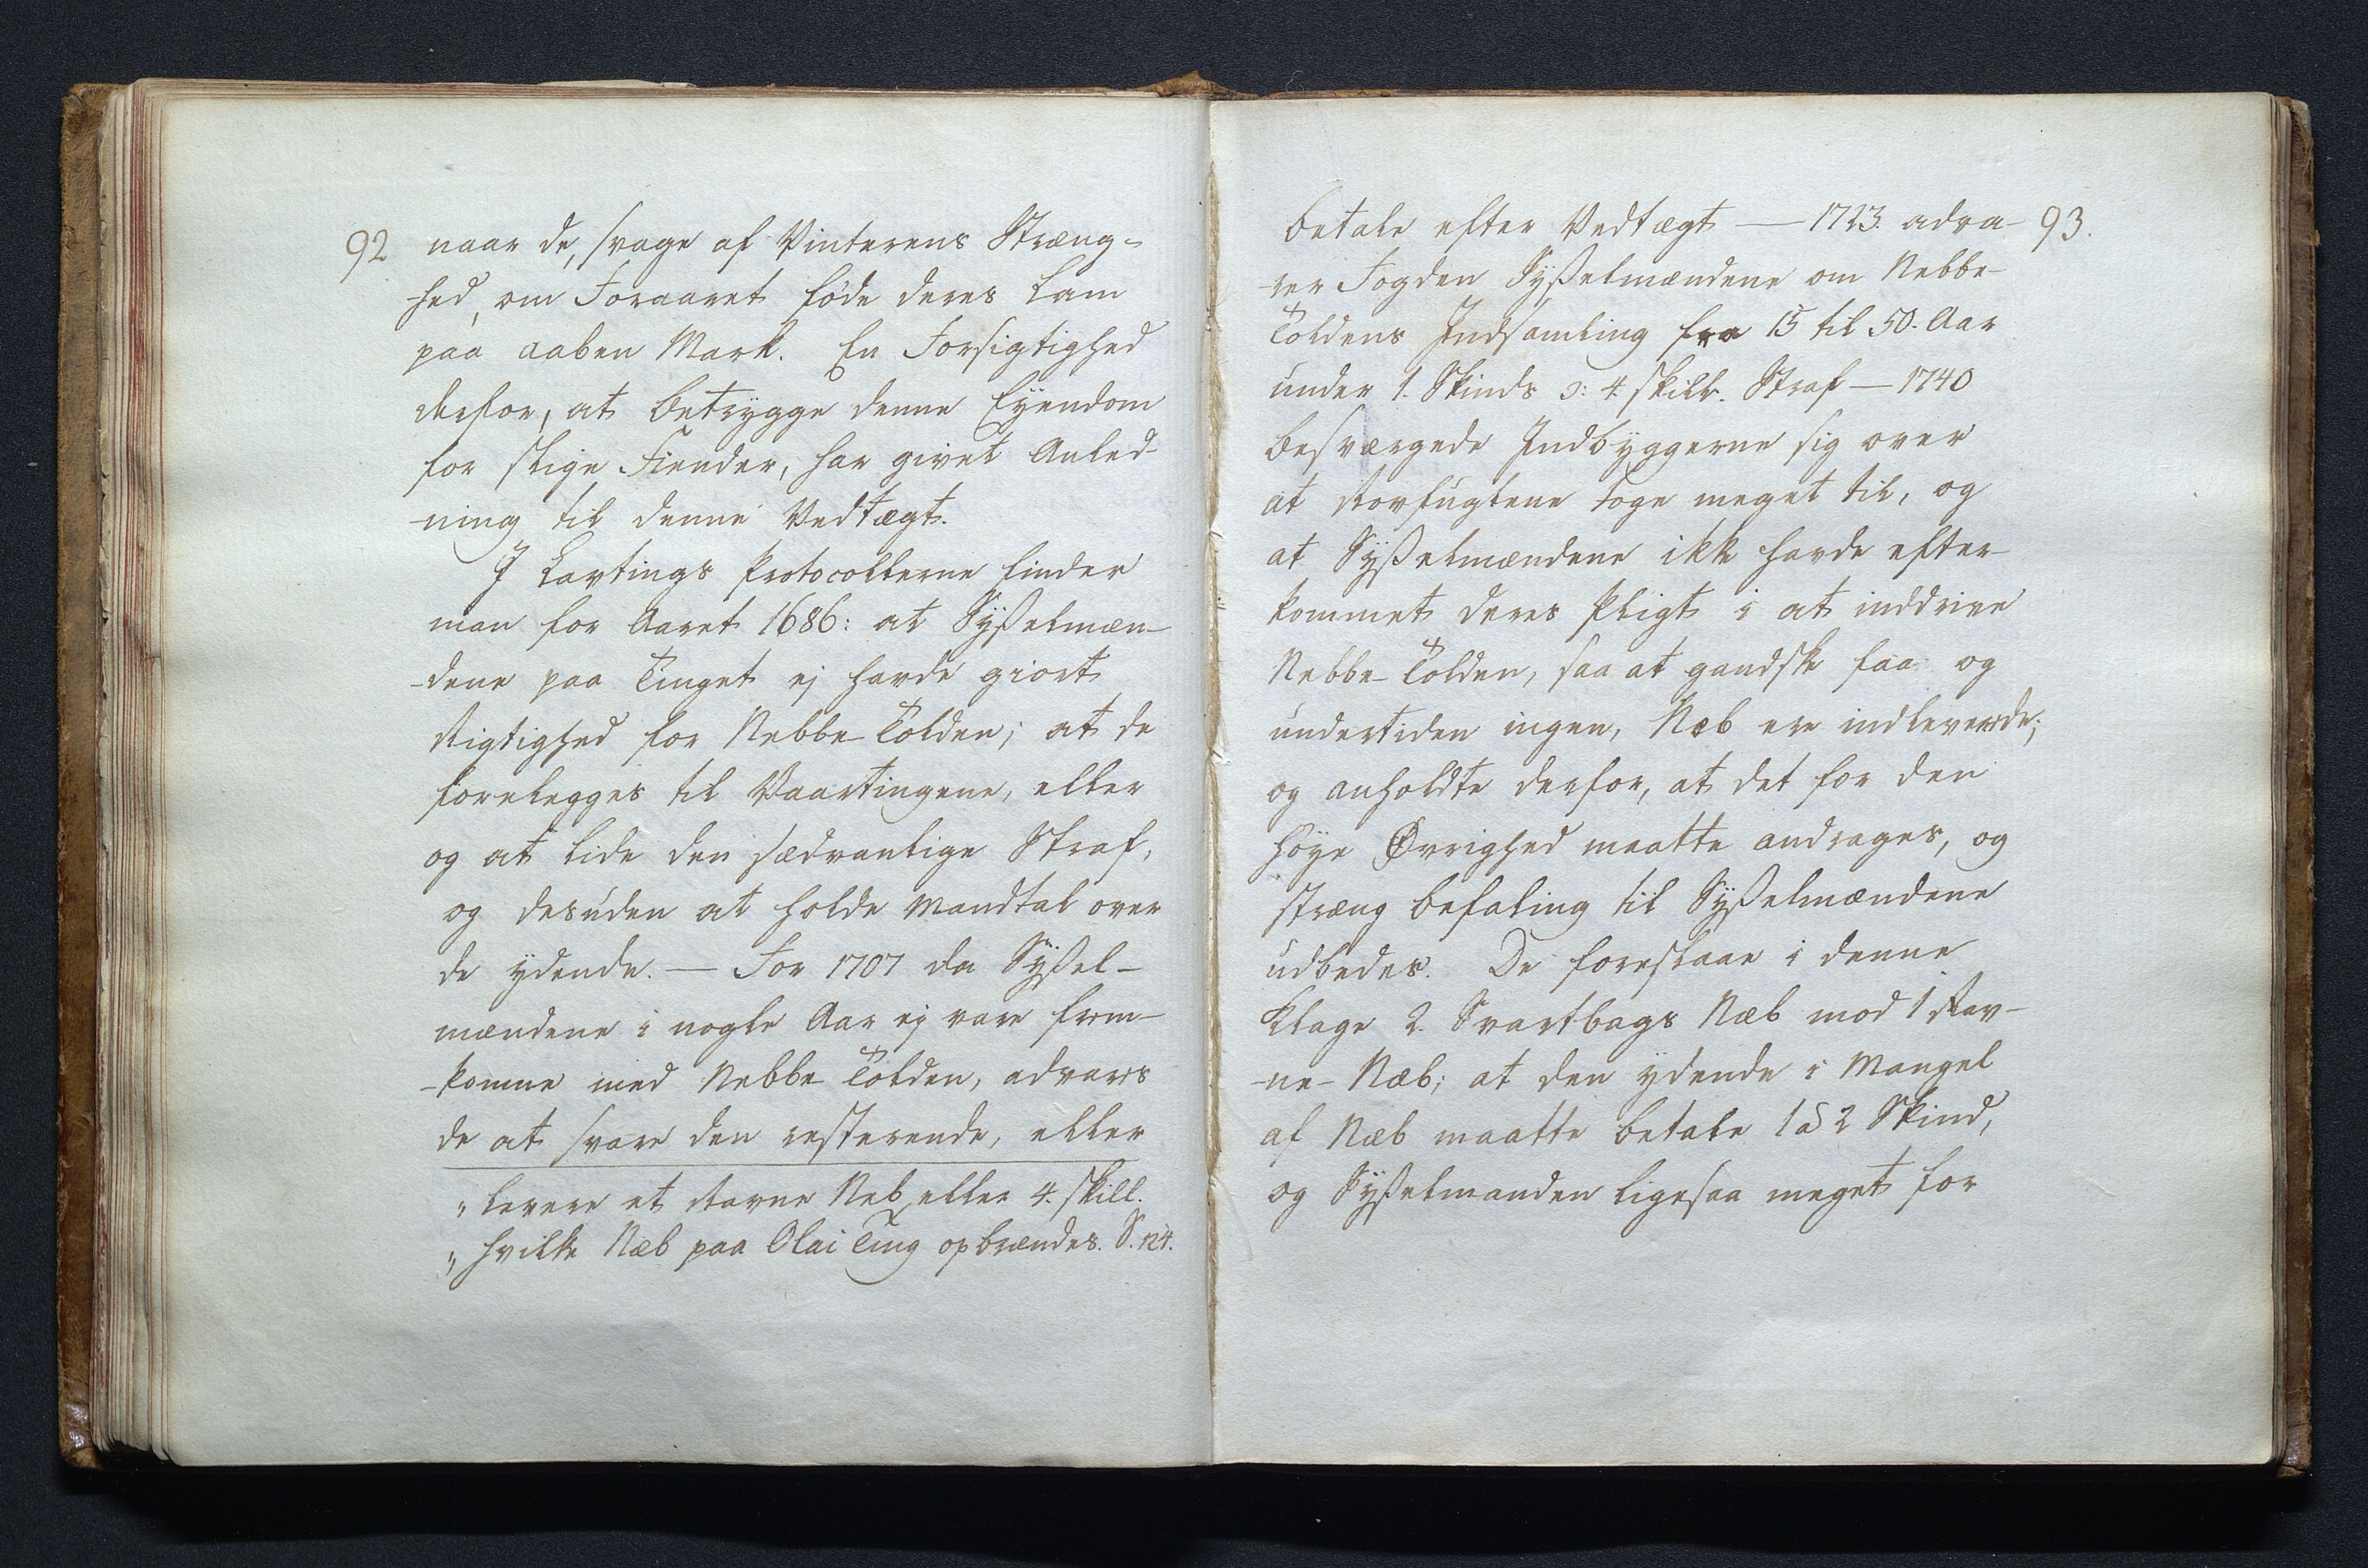 92 naar de, svage af Vinterens Stræng-
-hed, om Foraaret føde deres Lam
paa aaben Mark. En Forsigtighed
derfor, at betrygge denne Eÿendom
for slige Fiender, har givet Anled-
-ning til denne Vedtægt.
I Lavtings Protocollerne finder
man for Aaret 1686: at Sÿßelmæn-
-dene paa Tinget ej havde giort
Rigtighed for Nebbe-Tolden; at de
forelegges til Vaartingene, eller
og at lide den sædvanlige Straf,
og desuden at holde Mandtal over
de ydende. — For 1707 da Sÿßel-
mændene i nogle Aar ej vare frem-
-komne med Nebbe Tolden, advares
de at svare den resterende, eller
„ levere et Ravne Neb eller 4. skill.
„ hvilke Næb paa Olai Ting opbrændes. S. 124.
betale efter Vedtægt — 1723. adva- 93.
-rer Fogden Sÿßelmændene om Nebbe-
Toldens Indsamling fra 15 til 50. Aar
under 1. Skinds ɔ: 4 skill. Straf — 1740
besværgede Indbÿggerne sig over
at Rovfuglene toge meget til, og
at Sÿßelmændene ikke havde efter-
kommet deres Pligt i at inddrive
Nebbe-Tolden, saa at gandske faa og
undertiden ingen, Næb ere indleverede;
og anholdte derfor, at det for den
høye Øvrighed maatte andrages, og
stræng befaling til Sÿßelmændene
udbedes. De foreslaae i denne
Klage 2. Svartbags Næb mod 1 Rav-
-ne-Næb; at den ydende i Mangel
af Næb maatte betale 1 a 2 Skind,
og Sÿßelmanden ligesaa meget for